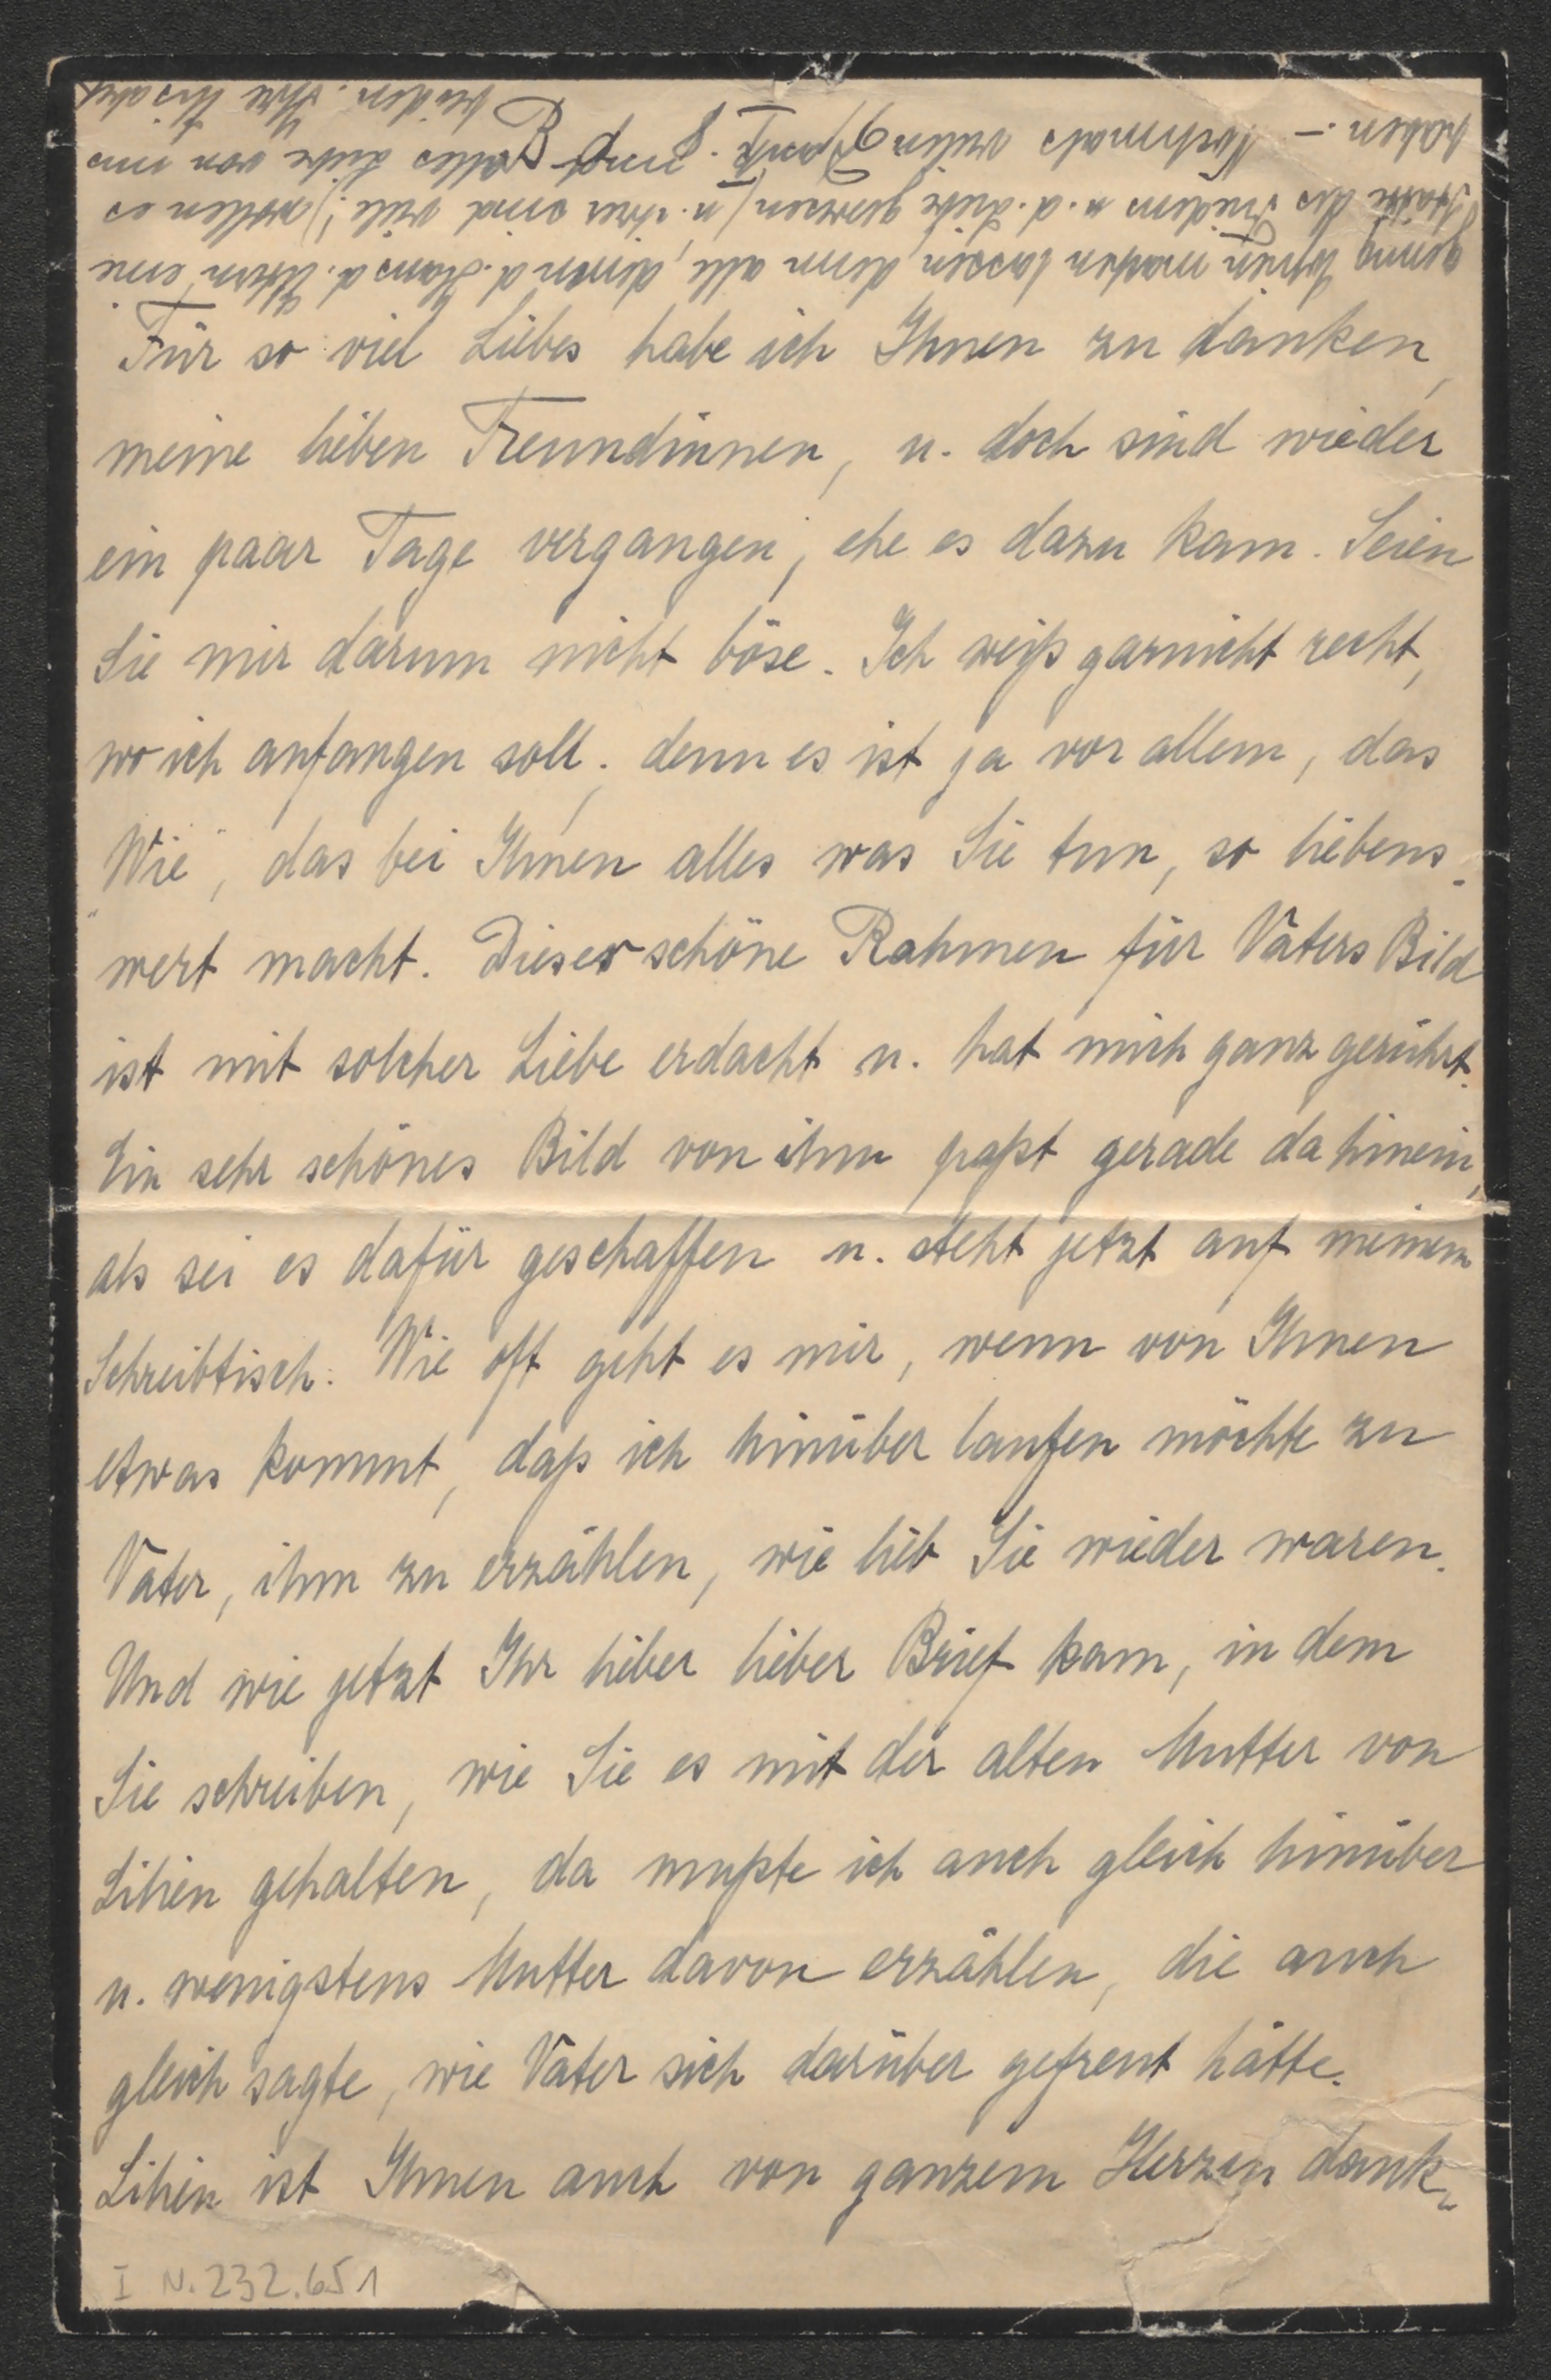 Für so viel Liebes habe ich Ihnen zu danken,
meine lieben Freundinnen, u. doch sind wieder
ein paar Tage vergangen, ehe es dazu kam. Seien
Sie mir darum nicht böse. Ich weiß garnicht recht,
wo ich anfangen soll; denn es ist ja vor allem, das
„Wie", das bei Ihnen alles was Sie tun, so liebens-
wert macht. Dieser schöne Rahmen für Vaters Bild
ist mit solcher Liebe erdacht u. hat mich ganz gerührt.
Ein sehr schönes Bild von ihm paßt gerade da hinein,
als sei es dafür geschaffen u. steht jetzt auf meinem
Schreibtisch. Wie oft geht es mir, wenn von Ihnen
etwas kommt, daß ich hinüber laufen möchte zu
Vater, ihm zu erzählen, wie lieb Sie wieder waren.
Und wie jetzt Ihr lieber lieber Brief kam, in dem
Sie schreiben, wie Sie es mit der alten Mutter von
Lilien gehalten, da mußte ich auch gleich hinüber
u. wenigstens Mutter davon erzählen, die auch
gleich sagte, wie Vater sich darüber gefreut hätte.
Lilien ist Ihnen auch von ganzem Herzen dank-
I N. 232.651
machen lassen, denn alle, denen d. Haus d. Eltern eine
Stätte des Friedens u. d. Liebe gewesen (u. ihrer sind viele!) wollen es
haben. – Nochmals vielen Dank und alles Liebe von uns
beiden. Ihre